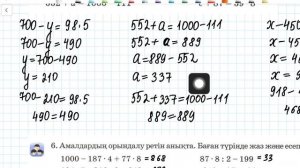 700-y=98·5
700-y=490
y=700-490
y=210
700-210=98·5
490=490
552+a=1000-111
552+a=889
a=889-552
a=337
552+337=1000-111
889=889
x-450
x-45
x=
918-
6. Амалдардың орындалу ретін анықта. Баған түрінде жаз және есепте
1000 − 187 · 4 + 77 · 8 = 868
87 · 8 : 2 − 199 = 33